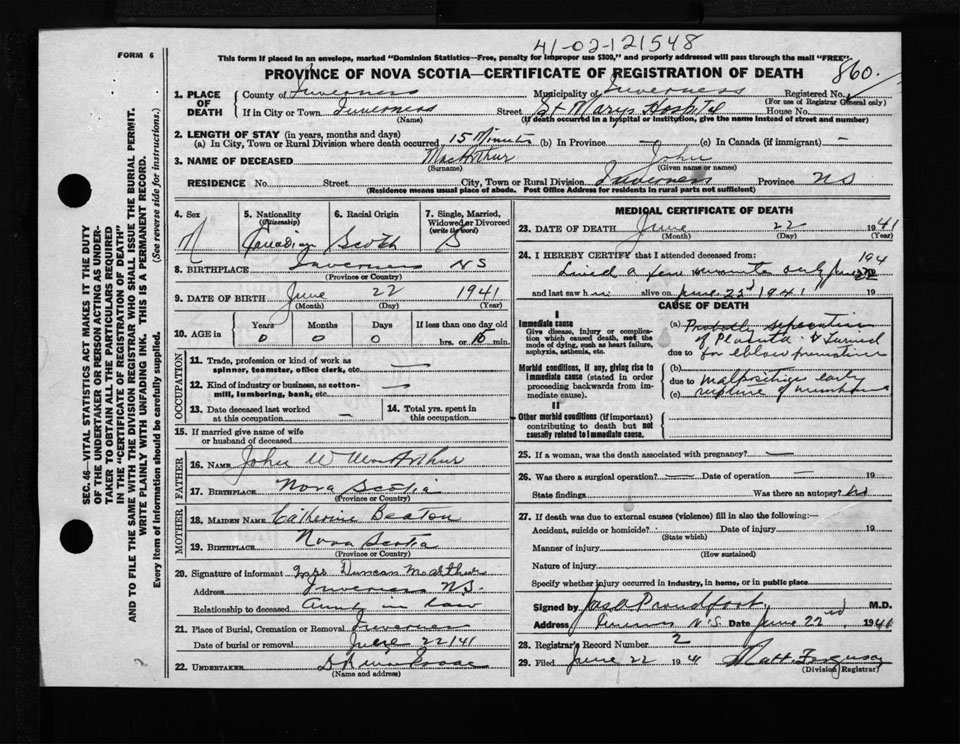 41-02-121548
FORM 6
This form if placed in an envelope, marked "Dominion Statistics—Free, penalty for improper use $300," and properly addressed will pass through the mail "FREE".
PROVINCE OF NOVA SCOTIA—CERTIFICATE OF REGISTRATION OF DEATH
860
1. PLACE OF DEATH
County of Inverness Municipality of Inverness Registered No.
(For use of Registrar General only)
If in City or Town Inverness Street St Marys Hospital House No.
(Name) (If death occurred in a hospital or institution, give the name instead of street and number)
2. LENGTH OF STAY (in years, months and days)
(a) In City, Town or Rural Division where death occurred 15 Minutes (b) In Province — (c) In Canada (if immigrant) —
3. NAME OF DECEASED MacArthur John
(Surname) (Given name or names)
RESIDENCE No. Street City, Town or Rural Division Inverness Province NS
(Residence means usual place of abode. Post Office Address for residents in rural parts not sufficient)
SEC. 46—VITAL STATISTICS ACT MAKES IT THE DUTY
OF THE UNDERTAKER OR PERSON ACTING AS UNDER-
TAKER TO OBTAIN ALL THE PARTICULARS REQUIRED
IN THE "CERTIFICATE OF REGISTRATION OF DEATH"
AND TO FILE THE SAME WITH THE DIVISION REGISTRAR WHO SHALL ISSUE THE BURIAL PERMIT.
WRITE PLAINLY WITH UNFADING INK. THIS IS A PERMANENT RECORD.
Every item of information should be carefully supplied. (See reverse side for instructions.)
4. Sex
M
5. Nationality
(Citizenship)
Canadian
6. Racial Origin
Scotch
7. Single, Married,
Widowed or Divorced
(write the word)
S
8. BIRTHPLACE Inverness NS
(Province or Country)
9. DATE OF BIRTH June 22 1941
(Month) (Day) (Year)
10. AGE in
Years Months Days If less than one day old
0 0 0 hrs. or 15 min.
OCCUPATION
11. Trade, profession or kind of work as
spinner, teamster, office clerk, etc. —
12. Kind of industry or business, as cotton-
mill, lumbering, bank, etc. —
13. Date deceased last worked
at this occupation —
14. Total yrs. spent in
this occupation
15. If married give name of wife
or husband of deceased
FATHER
16. NAME John W MacArthur
17. BIRTHPLACE Nova Scotia
(Province or Country)
MOTHER
18. MAIDEN NAME Catherine Beaton
19. BIRTHPLACE Nova Scotia
(Province or Country)
20. Signature of informant Mrs Duncan McArthur
Address Inverness N.S.
Relationship to deceased Aunt in law
21. Place of Burial, Cremation or Removal Inverness
Date of burial or removal June 22/41
22. UNDERTAKER
(Name and address)
MEDICAL CERTIFICATE OF DEATH
23. DATE OF DEATH June 22 1941
(Month) (Day) (Year)
24. I HEREBY CERTIFY that I attended deceased from: 194
Lived a few minutes only June 22
and last saw h alive on June 22d 1941
CAUSE OF DEATH
I
Immediate cause
Give disease, injury or complica-
tion which caused death, not the
mode of dying, such as heart failure,
asphyxia, asthenia, etc.
(a) Probably separation
of Placenta &
due to for
Morbid conditions, if any, giving rise to
immediate cause (stated in order
proceeding backwards from im-
mediate cause).
(b)
due to early
(c) rupture of
II
Other morbid conditions (if important)
contributing to death but not
causally related to immediate cause.
25. If a woman, was the death associated with pregnancy? —
26. Was there a surgical operation? — Date of operation — 19
State findings Was there an autopsy? No
27. If death was due to external causes (violence) fill in also the following:—
Accident, suicide or homicide? Date of injury 19
(State which)
Manner of injury
(How sustained)
Nature of injury
Specify whether injury occurred in industry, in home, or in public place
Signed by Jas A Proudfoot M.D.
Address N.S. Date June 22nd 1941
28. Registrar's Record Number 2
29. Filed June 22 1941 Matt. Ferguson
(Division Registrar)